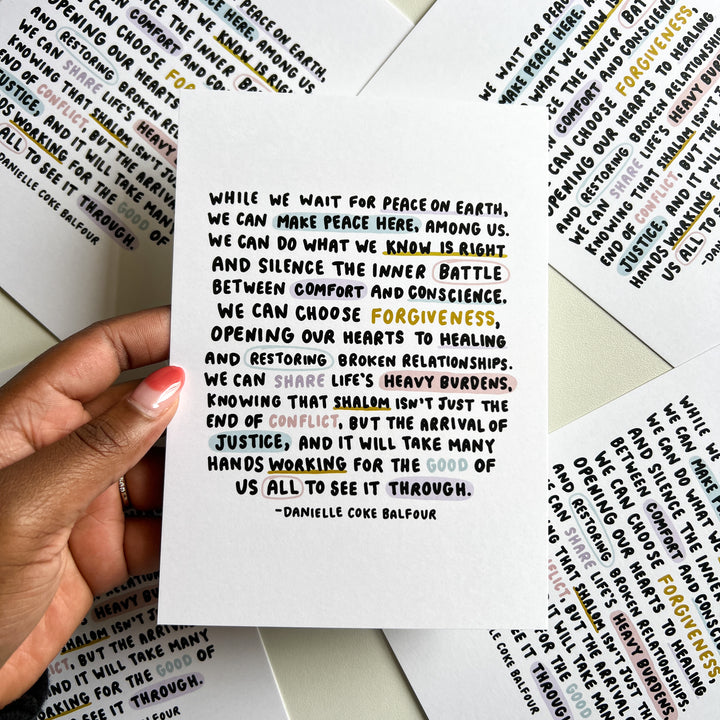 WHILE WE WAIT FOR PEACE ON EARTH,
WE CAN MAKE PEACE HERE, AMONG US.
WE CAN DO WHAT WE KNOW IS RIGHT
AND SILENCE THE INNER BATTLE
BETWEEN COMFORT AND CONSCIENCE.
WE CAN CHOOSE FORGIVENESS,
OPENING OUR HEARTS TO HEALING
AND RESTORING BROKEN RELATIONSHIPS.
WE CAN SHARE LIFE'S HEAVY BURDENS,
KNOWING THAT SHALOM ISN'T JUST THE
END OF CONFLICT, BUT THE ARRIVAL OF
JUSTICE, AND IT WILL TAKE MANY
HANDS WORKING FOR THE GOOD OF
US ALL TO SEE IT THROUGH.
-DANIELLE COKE BALFOUR